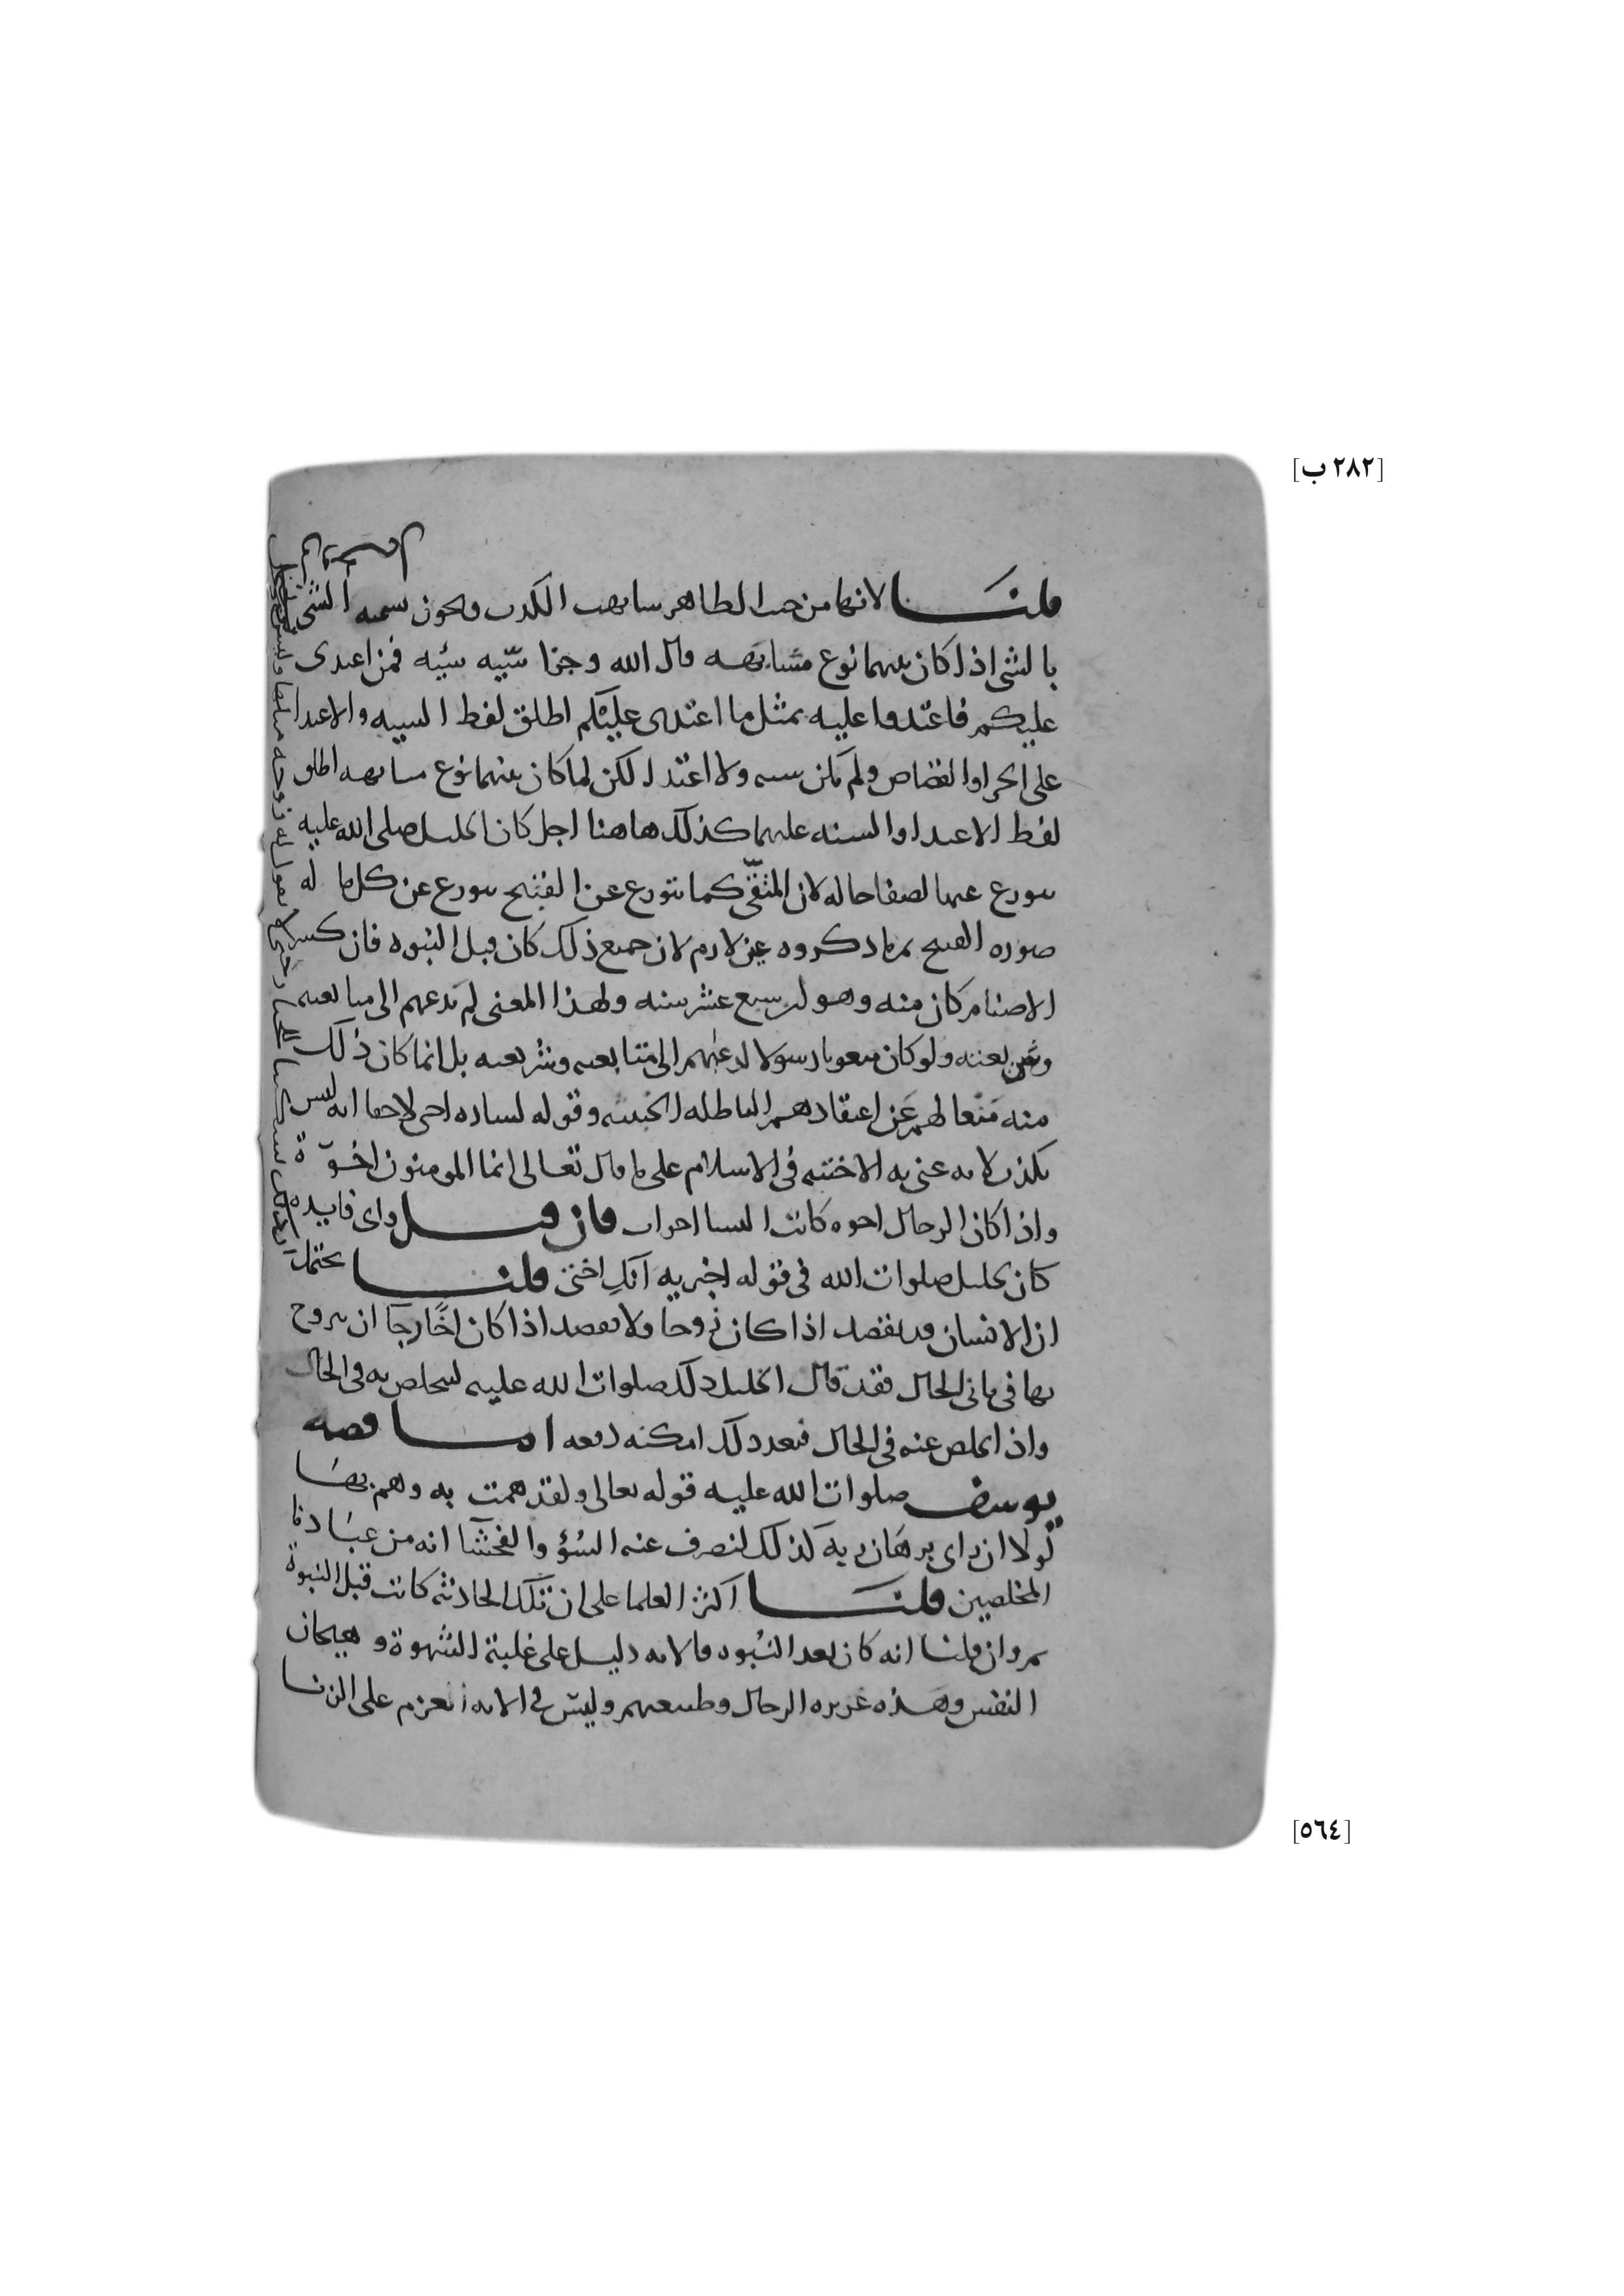 [٢٨٢ ب]
قلنا لانها من حيث الظاهر شابهت الكذب ويجوز تسمية الشي
بالشي اذا كان بينهما نوع مشابهة قال الله وجزا سيية سيية فمن اعتدى
عليكم فاعتدوا عليه بمثل ما اعتدى عليكم اطلق لفظ السيية والاعتدا
على الجزا والقصاص ولم يكن سية ولا اعتدا لكن لما كان بينهما نوع مشابهة اطلق
لفظ الاعتدا والسية عليهما كذلك هاهنا اجل كان الخليل صلى الله عليه
يتورع عنها لصفا حاله لان المتقي كما يتورع عن القبيح يتورع عن كل ما له
صورة القبيح ثم ما ذكروه غير لازم لان جميع ذلك كان قبل النبوة فان كسر
الاصنام كان منه وهو ابن سبع عشر سنة ولهذا المعنى لم يدعهم الى متابعته
وشريعته ولو كان مبعوثا رسولا لدعاهم الى متابعته وشريعته بل انما كان ذلك
منه منعا لهم عن اعتقادهم الباطلة الخبيثة وقوله لسارة اختي لا جفا انه ليس
بكذب لانه عنى به الاختية في الاسلام على ما قال تعالى انما المومنون اخوة
واذا كان الرجال اخوة كانت النسا اخوات فان قيل واي فايدة
كان لخليل صلوات الله في قوله اخبريه انك اختي قلنا يحتمل
ان الانسان قد يقصد اذا كان زوجا ولا يقصد اذا كان اخا رجا ان يزوج
بها في ثاني الحال فقد قال الخليل ذلك صلوات الله عليه ليتخلص به في الحال
واذا تخلص عنه في الحال فبعد ذلك امكنه دفعه اما قصة
يوسف صلوات الله عليه قوله تعالى ولقد همت به وهم بها
لولا ان راى برهان ربه كذلك لنصرف عنه السؤ والفحشا انه من عبادنا
المخلصين قلنا اكثر العلما على ان تلك الحادثة كانت قبل النبوة
ثم وان قلنا انه كان بعد النبوة فالاية دليل على غلبة الشهوة وهيجان
النفس وهذه غريزة الرجال وطبيعتهم وليس في الاية العزم على الزنا
[٥٦٤]